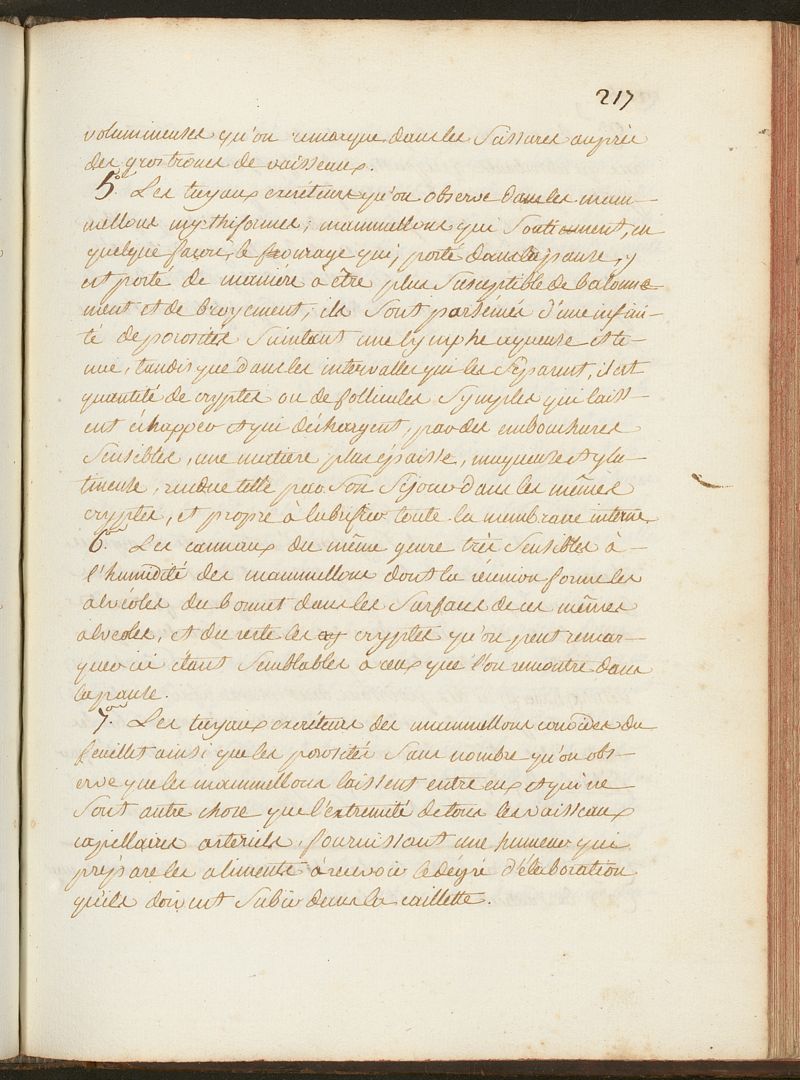 217
volumineuses qu'on remarque dans les Scissures auprès
des gros troncs de vaisseaux.
5.° Les tuyaux excréteurs qu'on observe dans les mam-
mellons mythiformes; mammellons qui Soutiennent, en
quelque façon, le fourage qui, porté dans la panse, y
est porté de manière à être plus Susceptible de balonne
ment et de broyement, ils Sont parsémés d'une infini-
té de porosités Suintant une lymphe aqueuse et te-
nue, tandis que dans les intervalles qui les Séparent, il est
quantité de cryptes ou de follicules Symples qui laiss-
ent échapper et qui déchargent, par des embouchures
Sensibles, une matiere plus épaisse, muqueuse et glu-
tineuse, rendue telle par Son Séjour dans les mêmes
cryptes, et propre à lubrifier toute la membrane interne
6.° Les cannaux du même genre très Sensibles à -
l'humidité des mammellons dont la réunion forme les
alvéoles du bonnet dans les Surfaces de ces mêmes
alvéoles, et du reste les cryptes qu'on peut remar-
quer ici étant Semblables à ceux que l'on rencontre dans
la panse.
7.° Les tuyaux excréteurs des mammellons conoïdes du
feuillet ainsi que les porosités Sans nombre qu'on obs-
erve que les mammellons laissent entre eux et qui ne
Sont autre chose que l'extremité de tous les vaisseaux
capillaires arteriels, fournissant une humeur qui
prépare les aliments à recevoir le dégré d'élaboration
qu'ils doivent Subir dans la caillette.